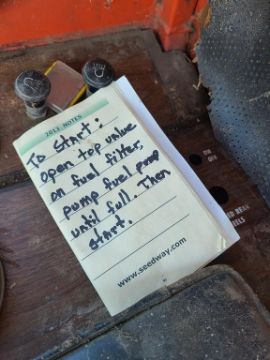 2013 NOTES
To Start:
open top valve
on fuel filter,
pump fuel pump
until full. Then
start.
www.seedway.com